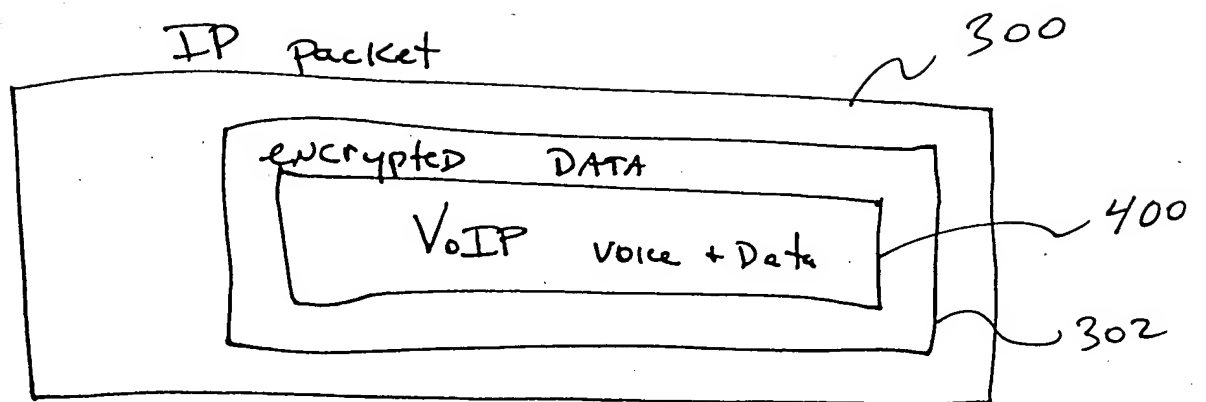 IP packet 300
encrypted DATA
VoIP voice + Data 400
302